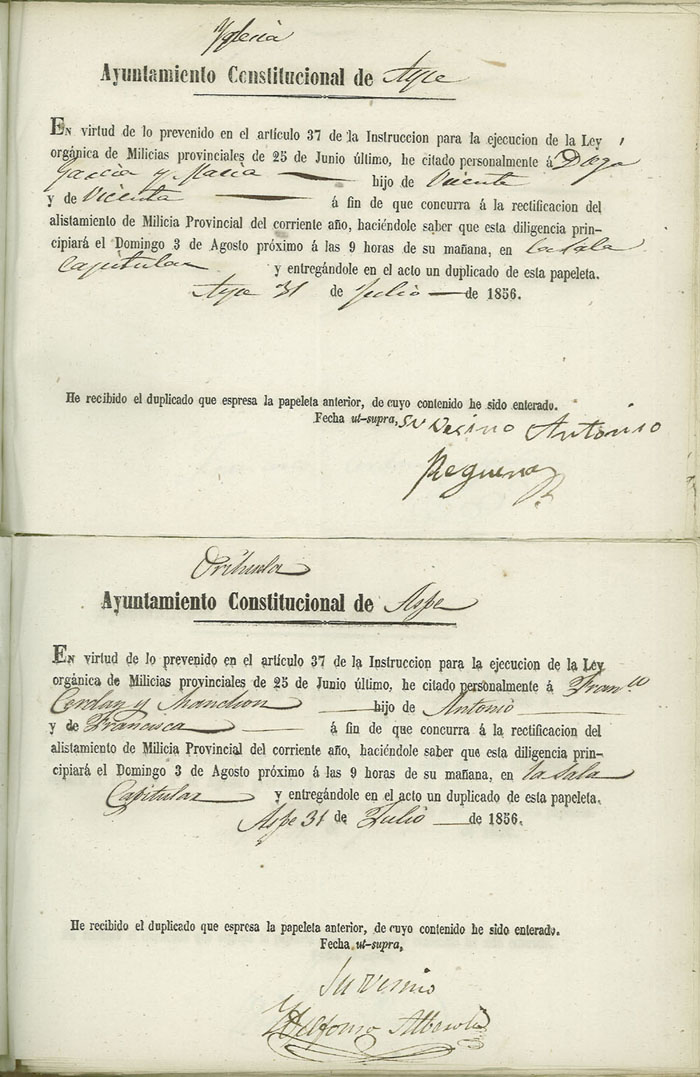 Yglecia
Ayuntamiento Constitucional de Aspe
En virtud de lo prevenido en el artículo 37 de la Instruccion para la ejecucion de la Ley
orgánica de Milicias provinciales de 25 de Junio último, he citado personalmente á
Garcia y Macia hijo de Vicente
y de Vicenta á fin de que concurra á la rectificacion del
alistamiento de Milicia Provincial del corriente año, haciéndole saber que esta diligencia prin-
cipiará el Domingo 3 de Agosto próximo á las 9 horas de su mañana, en la Sala
Capitular y entregándole en el acto un duplicado de esta papeleta.
Aspe 31 de Julio de 1856.
He recibido el duplicado que espresa la papeleta anterior, de cuyo contenido he sido enterado.
Fecha ut-supra, su vesino Antonio
Reguena
Orihuela
Ayuntamiento Constitucional de Aspe
En virtud de lo prevenido en el artículo 37 de la Instruccion para la ejecucion de la Ley
orgánica de Milicias provinciales de 25 de Junio último, he citado personalmente á Franco
Cerdan y Manchon hijo de Antonio
y de Francisca á fin de que concurra á la rectificacion del
alistamiento de Milicia Provincial del corriente año, haciéndole saber que esta diligencia prin-
cipiará el Domingo 3 de Agosto próximo á las 9 horas de su mañana, en la Sala
Capitular y entregándole en el acto un duplicado de esta papeleta.
Aspe 31 de Julio de 1856.
He recibido el duplicado que espresa la papeleta anterior, de cuyo contenido he sido enterado.
Fecha ut-supra,
Su vesino
Yldifonso Alberola